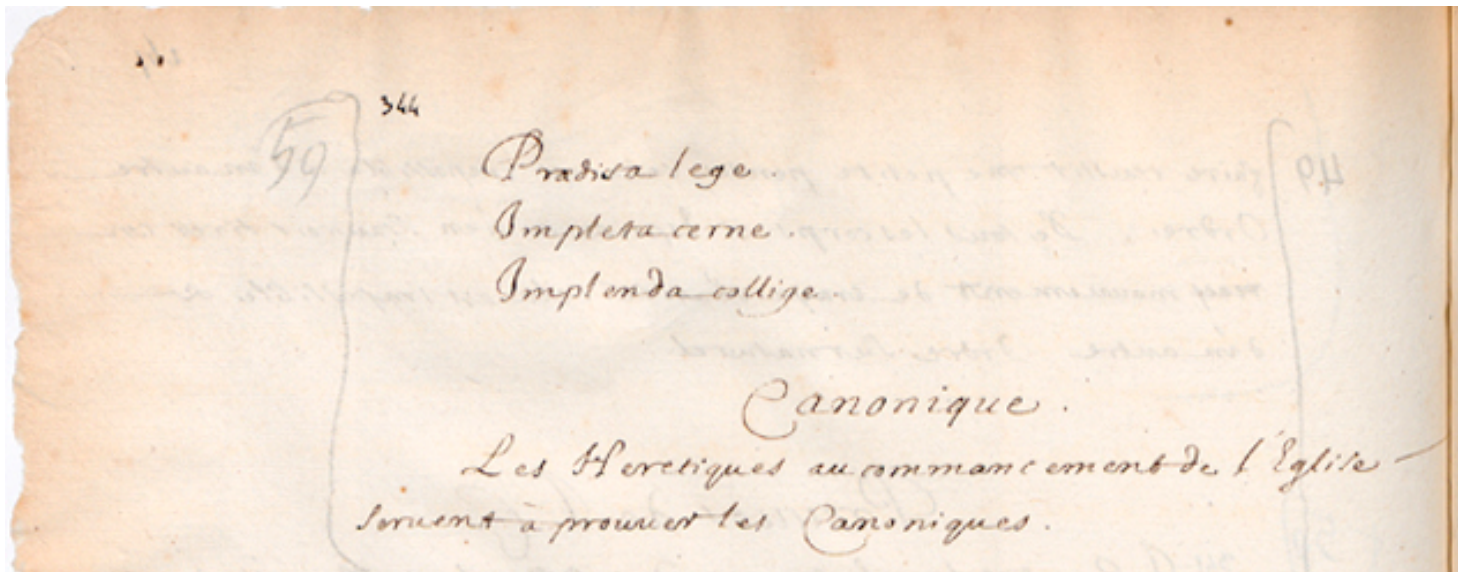 344
59
Prædicta lege
Impleta cerne.
Implenda collige.
Canonique.
Les Heretiques au commancement de l'Eglise
seruent à prouuer les Canoniques.